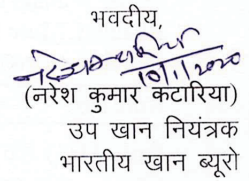 भवदीय,
10/1/2020
(नरेश कुमार कटारिया)
उप खान नियंत्रक
भारतीय खान ब्यूरो